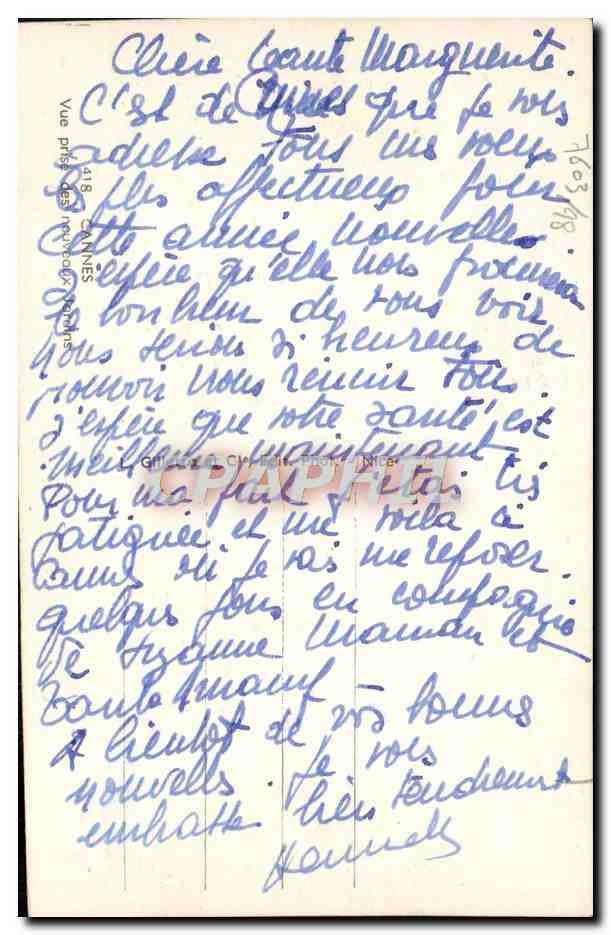 Chère tante Marguerite.
C'est de Cannes que je vous
adresse tous mes voeux
les plus affectueux pour
cette année nouvelle
j'espère qu'elle nous procurera
le bonheur de vous voir
nous serions si heureux de
pouvoir nous réunir tous.
j'espère que votre santé est
meilleure maintenant
Pour ma part j'étais très
fatiguée et me voilà à
Cannes où je vais me reposer
quelques jours en compagnie
de Suzanne Maman et
tante
A bientôt de vos bonnes
nouvelles. Je vous
embrasse bien tendrement
418 - CANNES
Vue prise des nouveaux Jardins
7603/98
L. Gilletta et Cie, Edit. Phot. - Nice
CPAPHIL